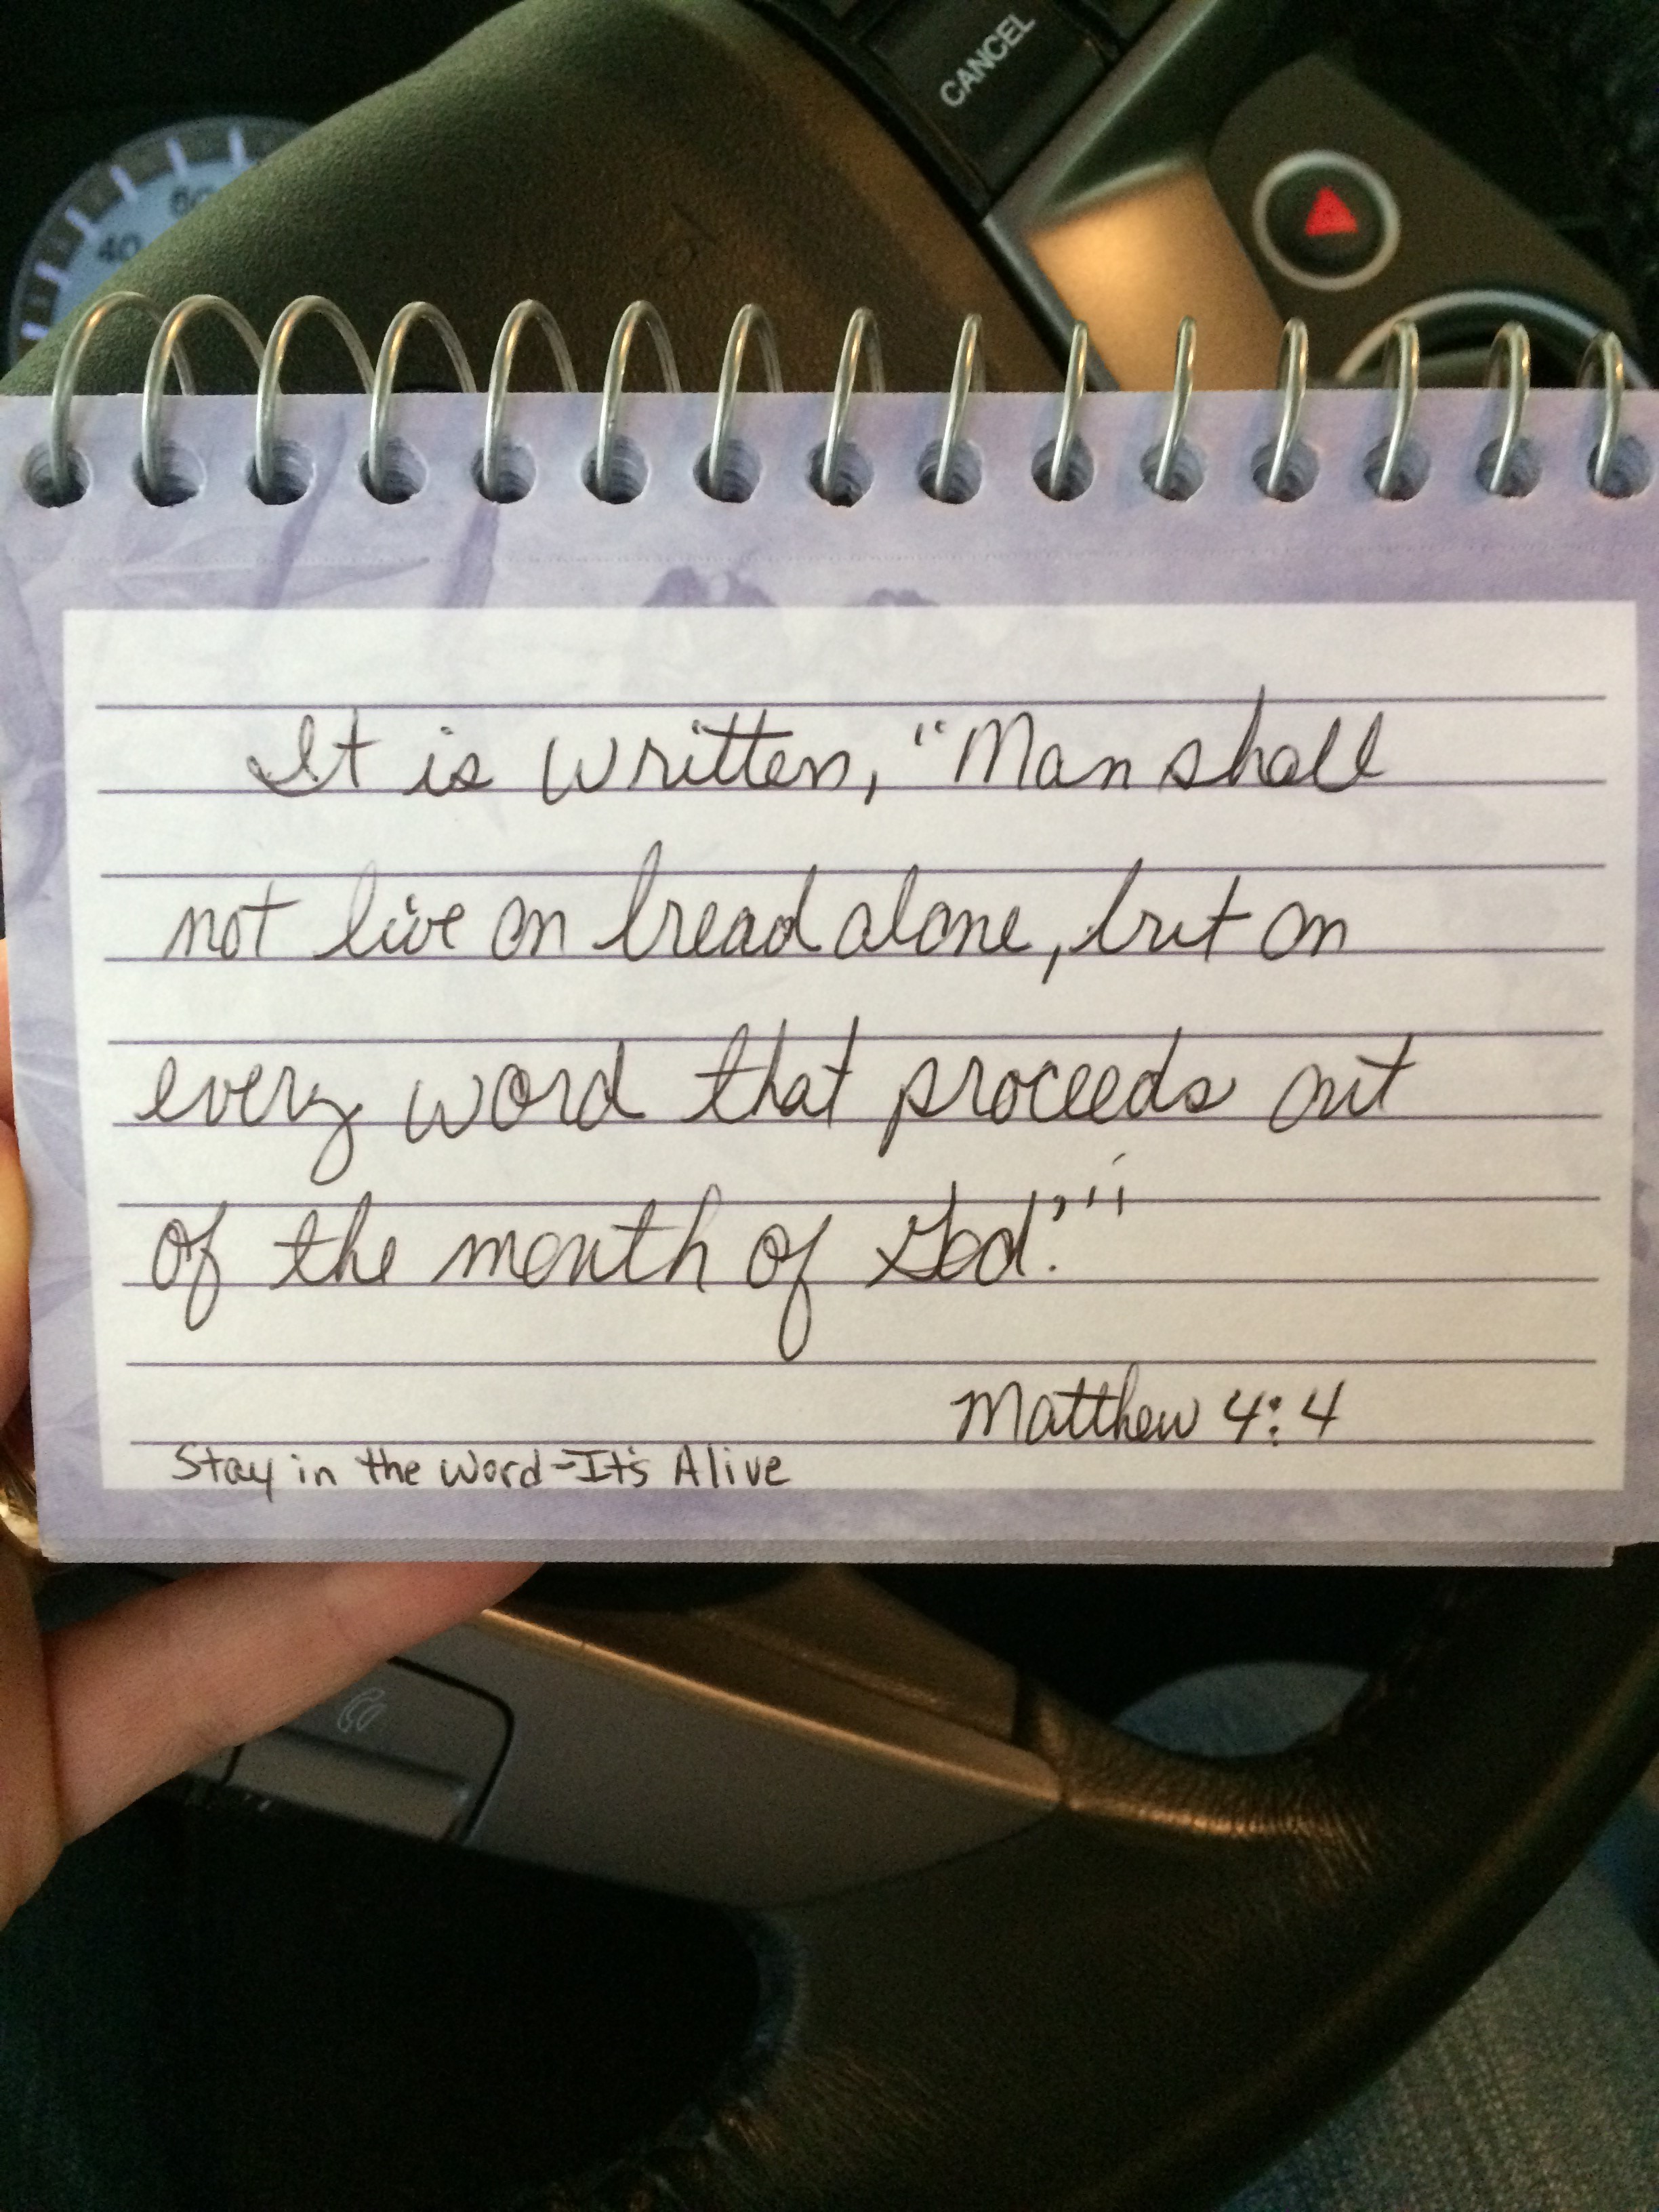 CANCEL
60
40
It is written, "Man shall
not live on bread alone, but on
every word that proceeds out
of the mouth of God.'"
Matthew 4:4
Stay in the Word-It's Alive